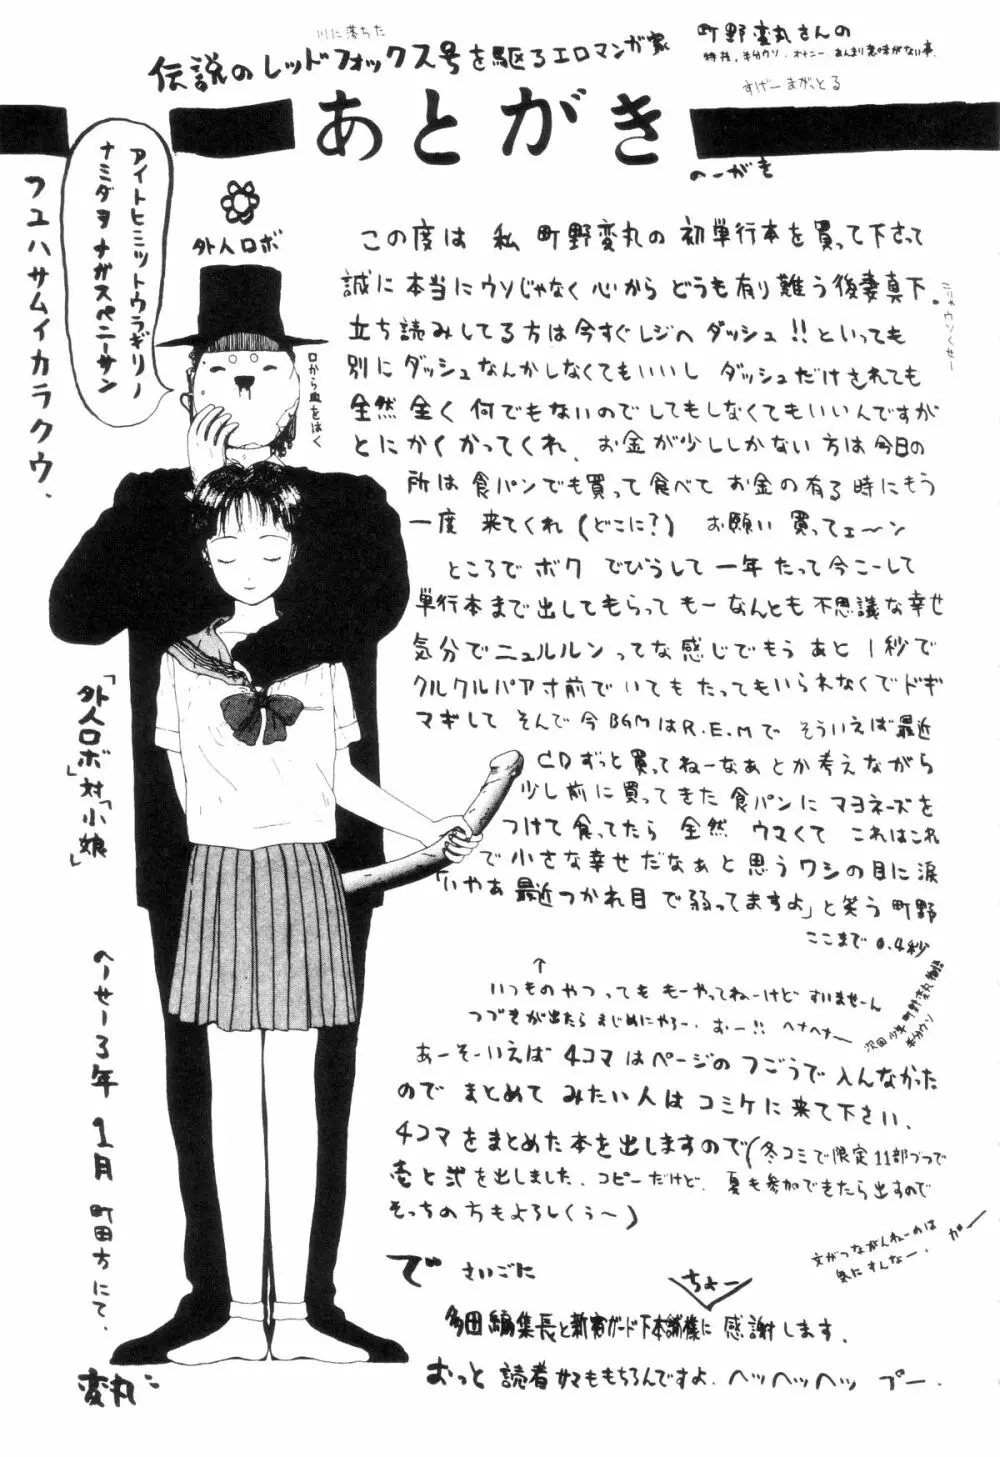 川に落ちた
伝説のレッドフォックス号を駆るエロマンガ家
町野変丸さんの
特技。半分ウソ。オナニー。あんまり意味がない事。
すげーまがっとる
あとがき
のーがき
アイトヒミツトウラギリノ
ナミダヲナガスペニーサン
フユハサムイカラクウ.
外人ロボ
口から血をはく
この度は 私 町野変丸の 初単行本を 買って下さって
誠に 本当に ウソじゃなく 心から どうも 有り 難う 後妻真下.
こりゃウソくせー
立ち読みしてる方は 今すぐ レジへ ダッシュ!! といっても
別に ダッシュなんかしなくてもいいし ダッシュだけされても
全然 全く 何でもないのでしてもしなくてもいいんですが
とにかくかってくれ. お金が少ししかない方は今日の
所は 食パンでも買って食べて お金の有る時にもう
一度 来てくれ (どこに?) お願い 買ってェ〜ン
ところで ボク でびうして 一年 たって今こーして
単行本まで出してもらって もー なんとも 不思議な幸せ
気分で ニュルルン ってな感じでもう あと 1秒で
クルクルパア寸前で いても たってもいられなくて ドギ
マギして そんで 今 BGMは R.E.M で そういえば最近
CDずっと買ってねーなぁとか考えながら
少し前に買ってきた食パンに マヨネーズを
つけて食ってたら 全然 ウマくて これはこれ
で小さな幸せだなぁと思うワシの目に涙
「いやぁ最近つかれ目で弱ってますよ」と笑う町野
ここまで 0.4秒
↑
いつものやつっても もーやってねーけど すいませーん
つづきが出たら まじめにやろー. おー!! ヘナヘナー
次回 少年町野変丸物語
半分ウソ
あーそーいえば 4コマはページの つごうで 入んなかった
ので まとめて みたい人は コミケに 来て下さい.
4コマをまとめた本を出しますので(冬コミで限定11部づつで
壱と弐を出しました. コピーだけど. 夏も参加できたら出すので
そっちの方もよろしくぅ〜)
文がつながんねーのは
気にすんなー. ガー
で さいごに
ちょー
多田編集長と新宿ガード下本舗様に 感謝します.
おっと 読者サマももちろんですよ. ヘッヘッヘッ プー.
「外人ロボ」対「小娘」
へーせー3年 1月 町田方にて.
変丸